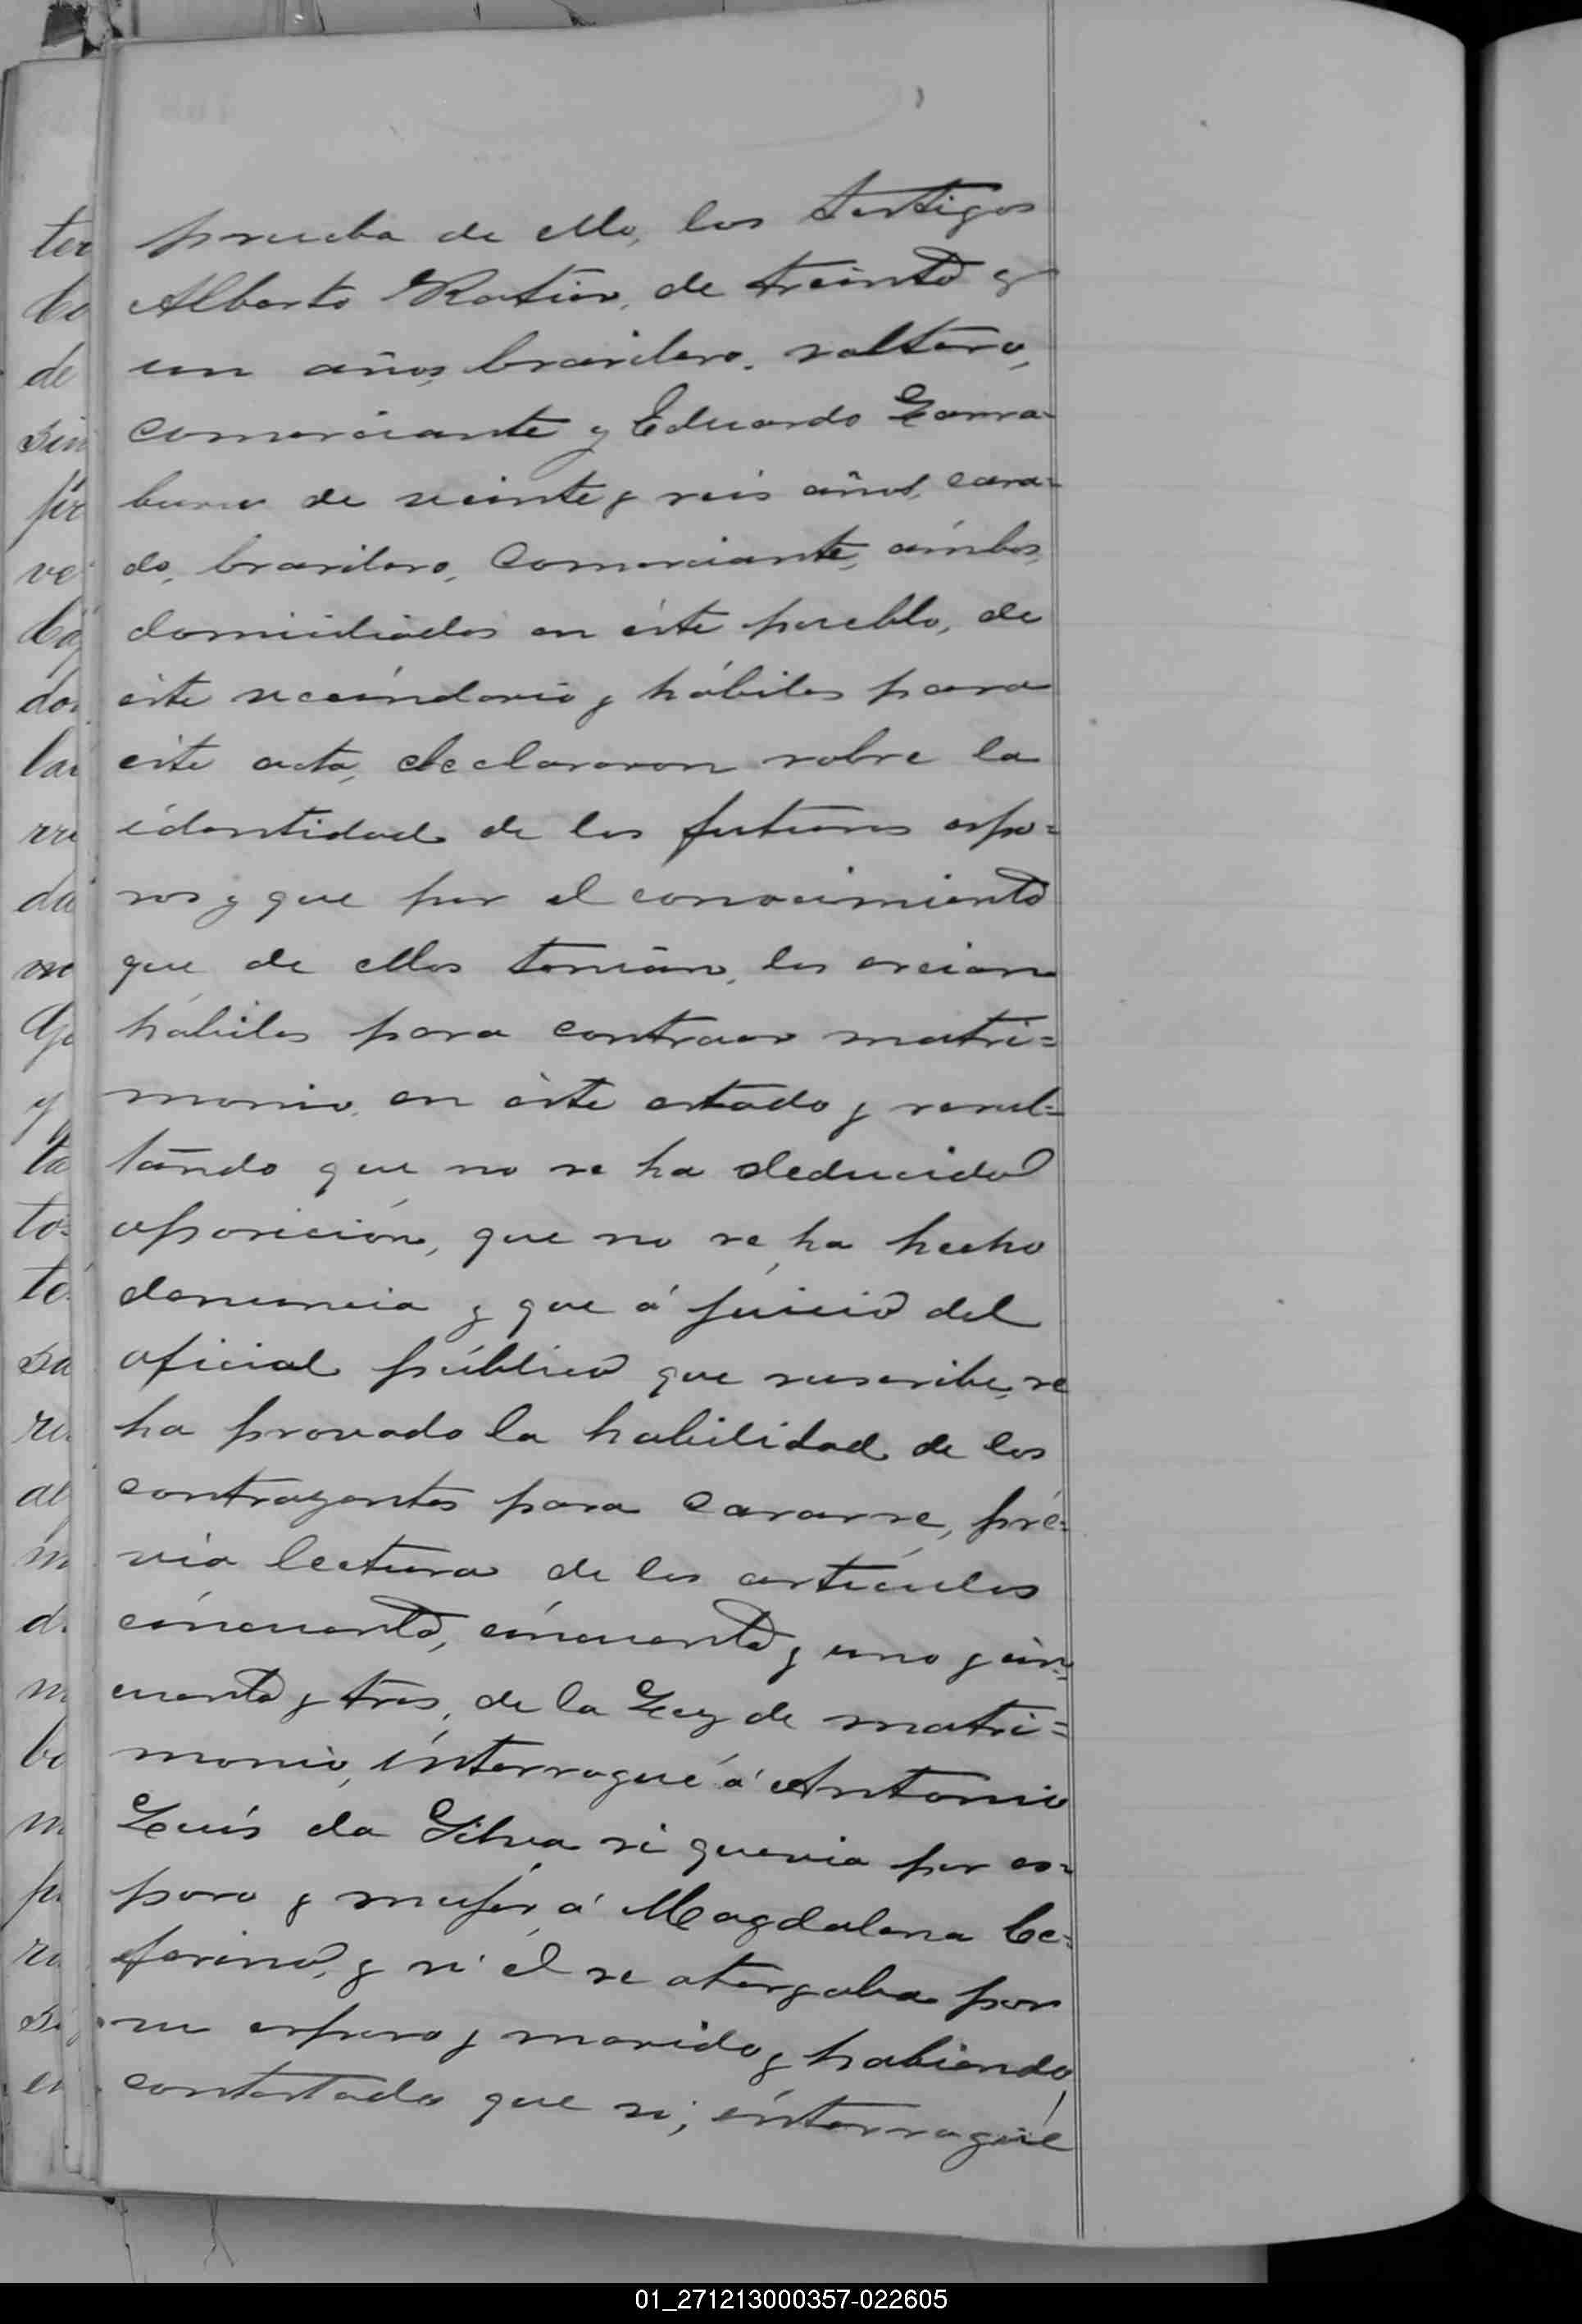 prueba de ello, los testigos
Alberto Ratier, de treinta y
un años, brasilero, soltero,
comerciante y Eduardo Larra=
buru de veinte y seis años, casa=
do, brasilero, comerciante, ámbos,
domiciliados en éste pueblo, de
éste vecindario y hábiles para
éste acto, declararon sobre la
identidad de los futuros espo=
sos y que por el conocimiento
que de ellos tenían, los creían
hábiles para contraer matri=
monio, en éste estado y resul=
tando que no se ha deducido
oposición, que no se ha hecho
denuncia y que á juicio del
oficial público que suscribe, se
ha provado la habilidad de los
contrayentes para casarse, pré=
via lectura de los artículos
cincuenta, cincuenta y uno y cin=
cuenta y tres, de la Ley de matri=
monio, interrogué á Antonio
Luís da Silva si queria por es=
posa y mujer á Magdalena Ce=
ferino, y si él se otorgaba por
su esposo y marido y habiendo
contestado que si; interrogué
ter
de
sin
ve
do
la
da
y
ta
to=
sa
al
m
d
m
bo
m
p
si
en
01_271213000357-022605